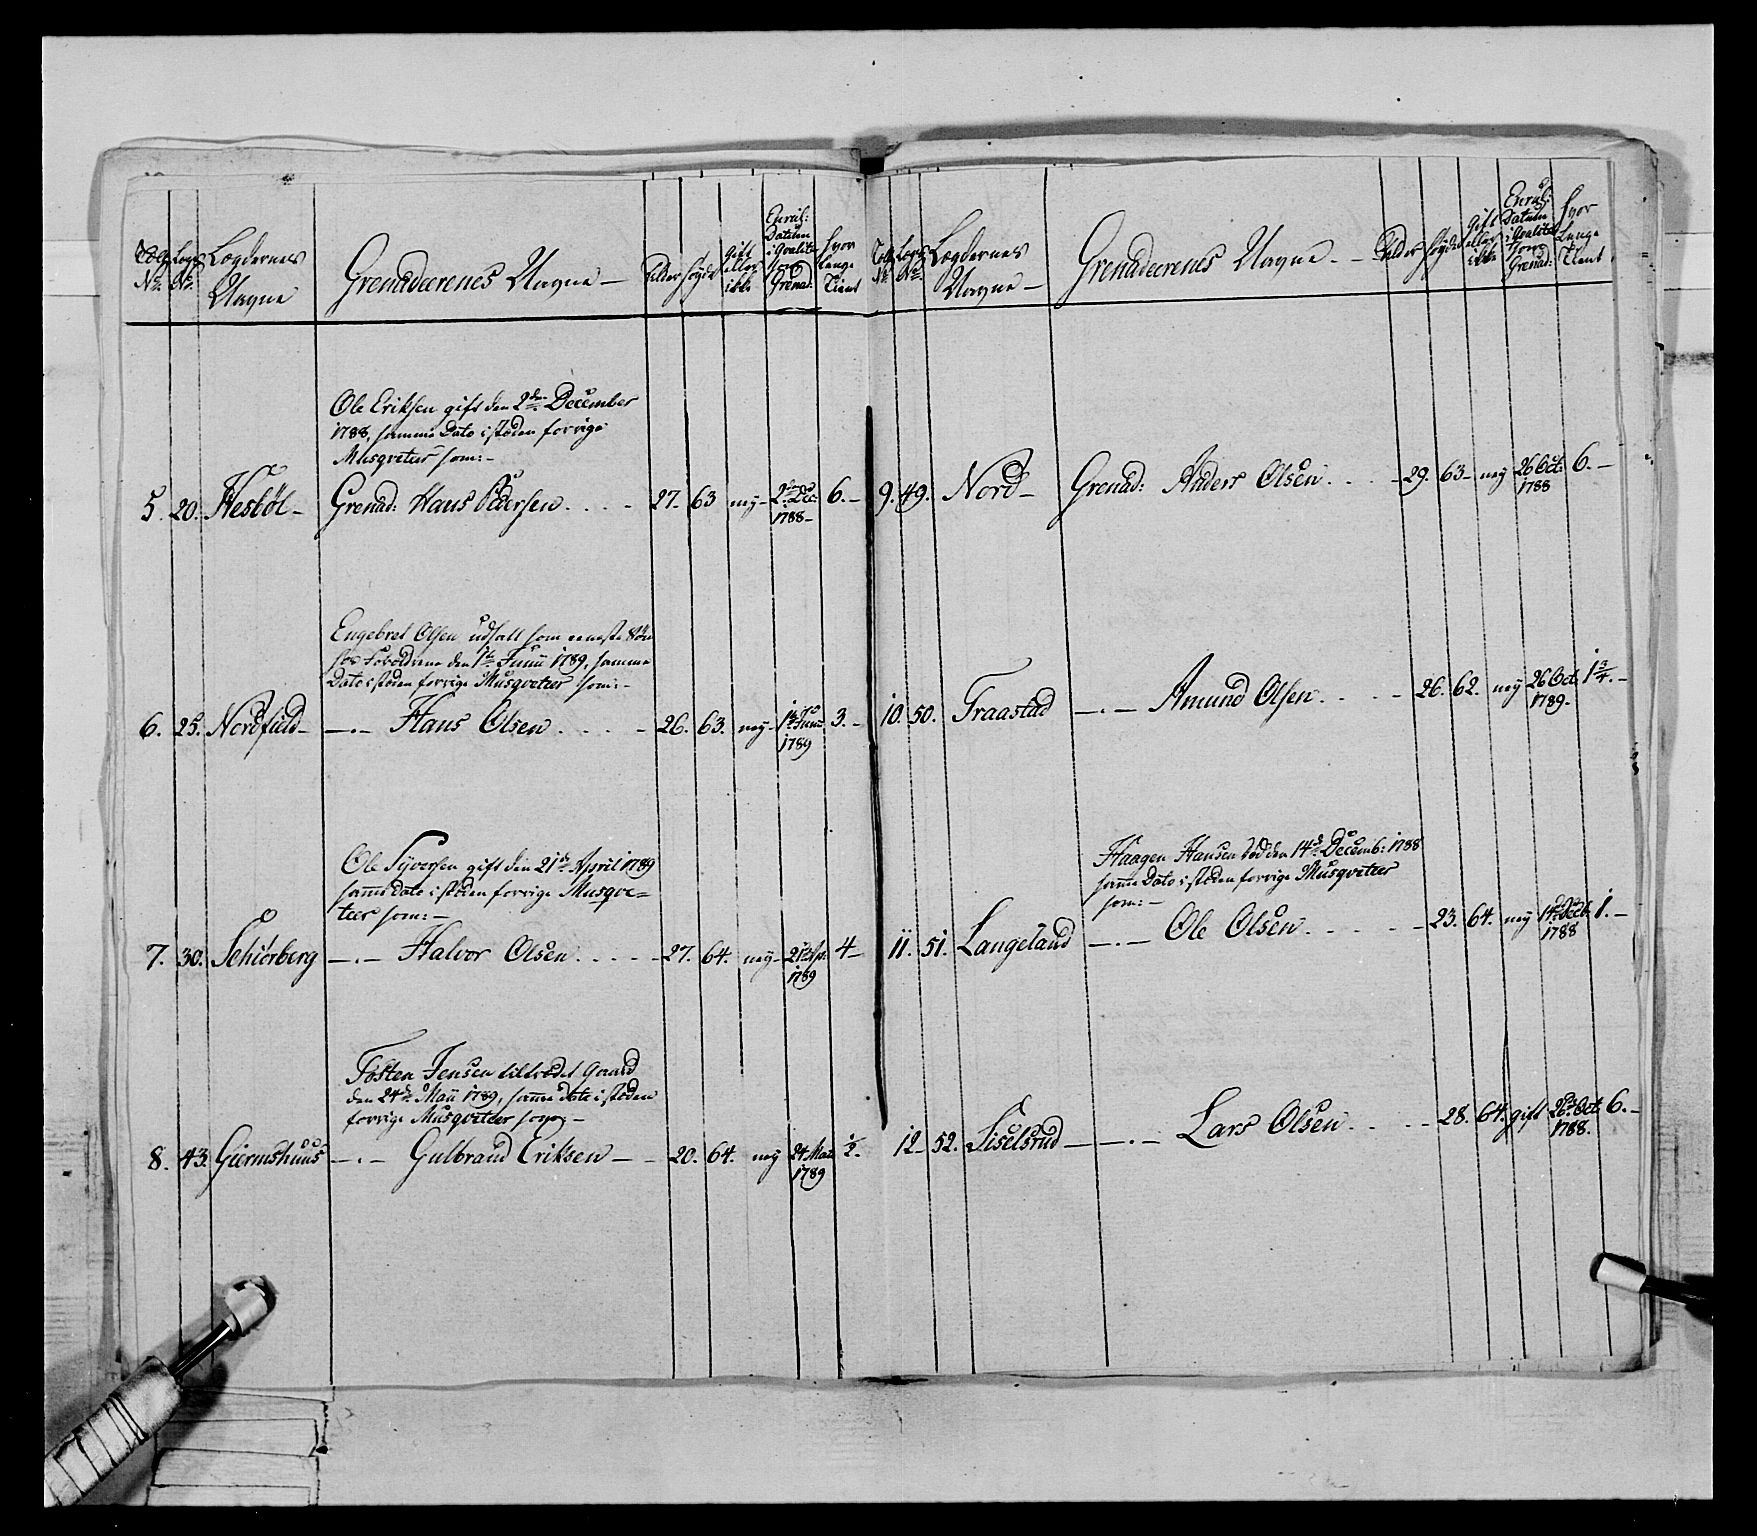 Lægdernes
Navne
Grenadeerenes Navne —
Alder
Høyde
Gift
eller
ikke
Enrul:
Datum
i Qvalitet
som
Grenad:
Hvor
Længe
Tient
Ole Eriksen gift den 2den December
1788, samme Dato i stæden forrige
Musqveteer som:-
5. 20. Hesbøl - Grenad: Hans Pedersen .... 27. 63 nej - 2den Dec: 1788 - 6. -
Engebret Olsen udsatt som eeneste Søn
for Forældrene den 1te Junii 1789, samme
Dato i stæden forrige Musqveteer som:-
6. 25. Nordfield - —.— Hans Olsen .... 26. 63. nej - 1te Junii 1789 3. -
Ole Syversen gift den 21de April 1789
samme dato i stæden forrige Musqve=
teer som:-
7. 30. Schiørberg —.— Halvor Olsen .... 27. 64. nej - 21de Ap: 1789 4 -
Tosten Jensen tiltrædet Gaard
den 24de Maii 1789, samme dato i stæden
forrige Musqveteer som -
8. 43. Giermshuus —.— Gulbrand Eriksen — 20. 64. nej 24 Mai 1789 ½ -
Lægdernes
Navne -
Grenadeerenes Navne. -
Alder
Høyde
Gift
eller
ikke
Enrul:
Datum
i Qvalitet
som
Grenad:
Hvor
Længe
Tient
9. 49. Nord - Grenad: Anders Olsen .... 29. 63 - nej 26 Oct: 1788 6. -
10. 50. Traastad —.— Amund Olsen .... 26. 62. nej 26 Oct: 1789. 1¾. -
Haagen Hansen død den 14de Decemb: 1788
samme Dato i stæden forrige Musqveteer
som:-
11. 51. Langeland —.— Ole Olsen .... 23. 64. nej 14de Decb: 1788 1. -
12. 52. Siselsrud —.— Lars Olsen .... 28. 64. gift 26de Oct: 1788. 6. -